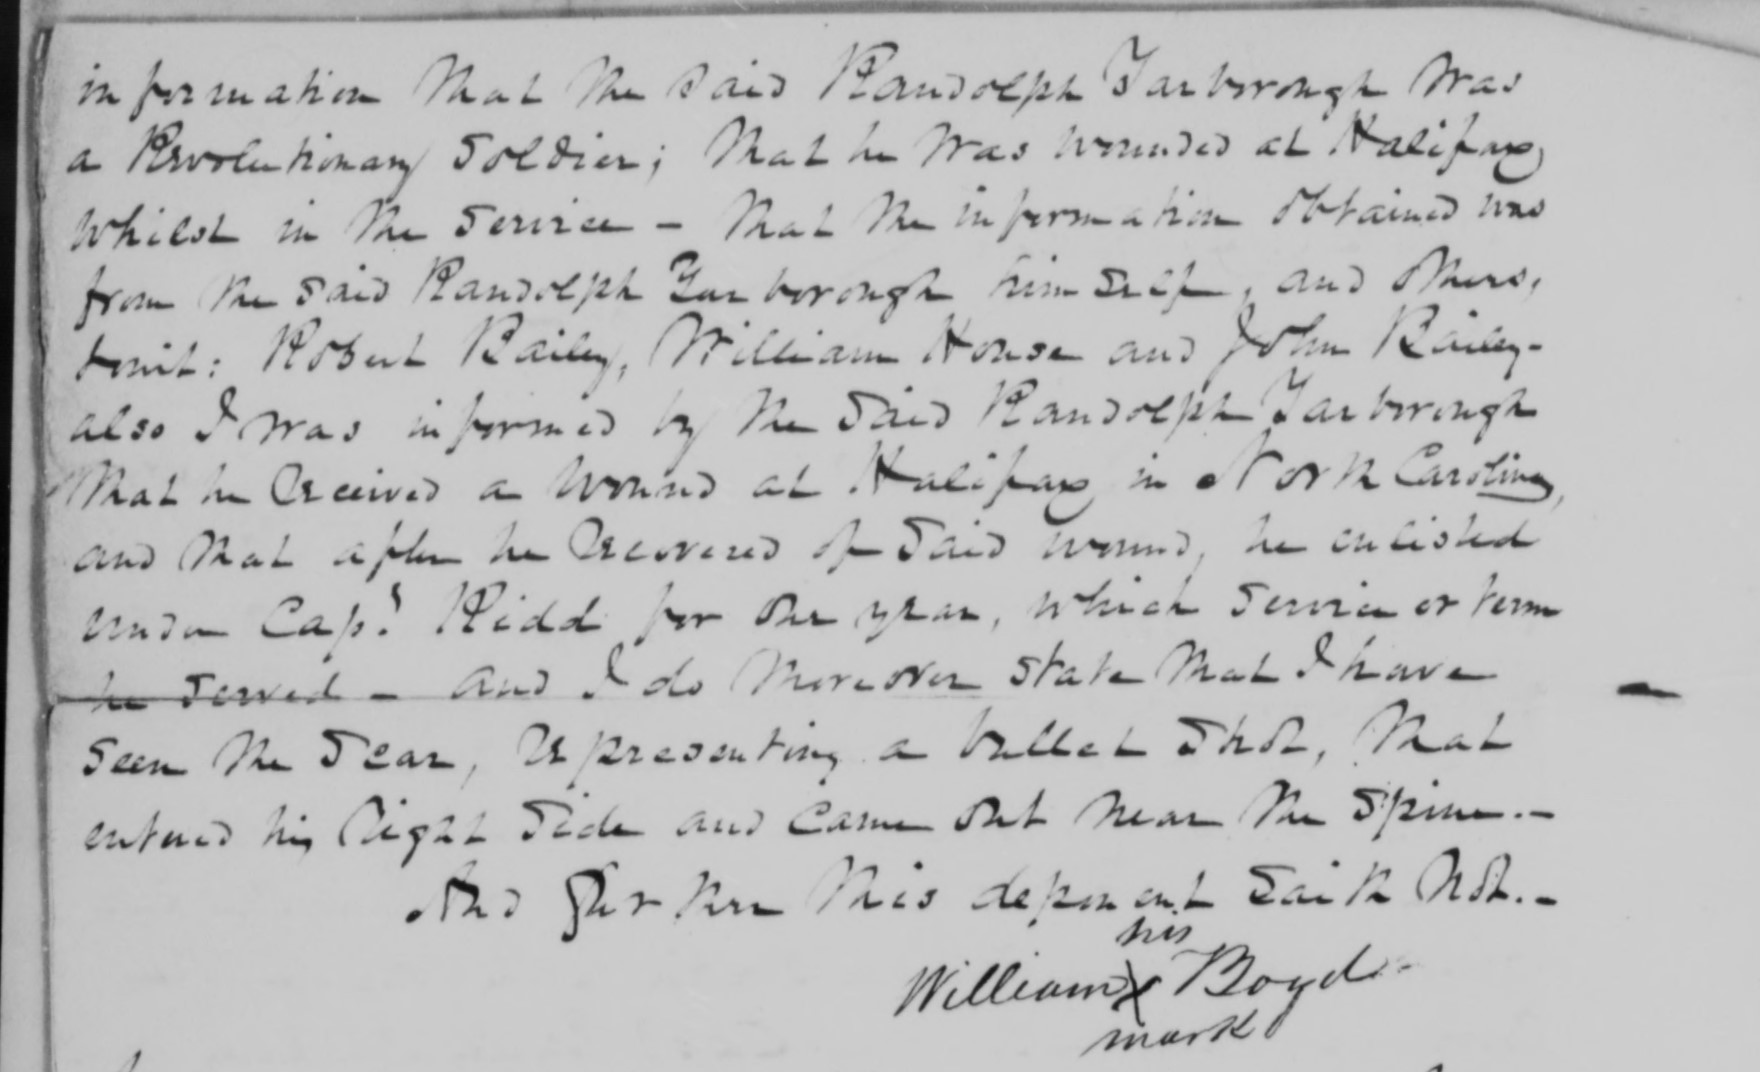 information that the said Randolph Yarborough was
a Revolutionary Soldier; that he was wounded at Halifax,
whilst in the Service - that the information obtained was
from the said Randolph Yarborough himself, and others,
towit: Robert Bailey, William House and John Bailey -
also I was informed by the said Randolph Yarborough
that he received a wound at Halifax in North Carolina,
and that after he recovered of said wound, he enlisted
under Capt. Kidd for one year, which service or term
he served - and I do moreover state that I have
seen the scar, representing a bullet shot, that
entered his right side and came out near the spine. -
And further this deponent saith not. -
his
William X Boyd
mark